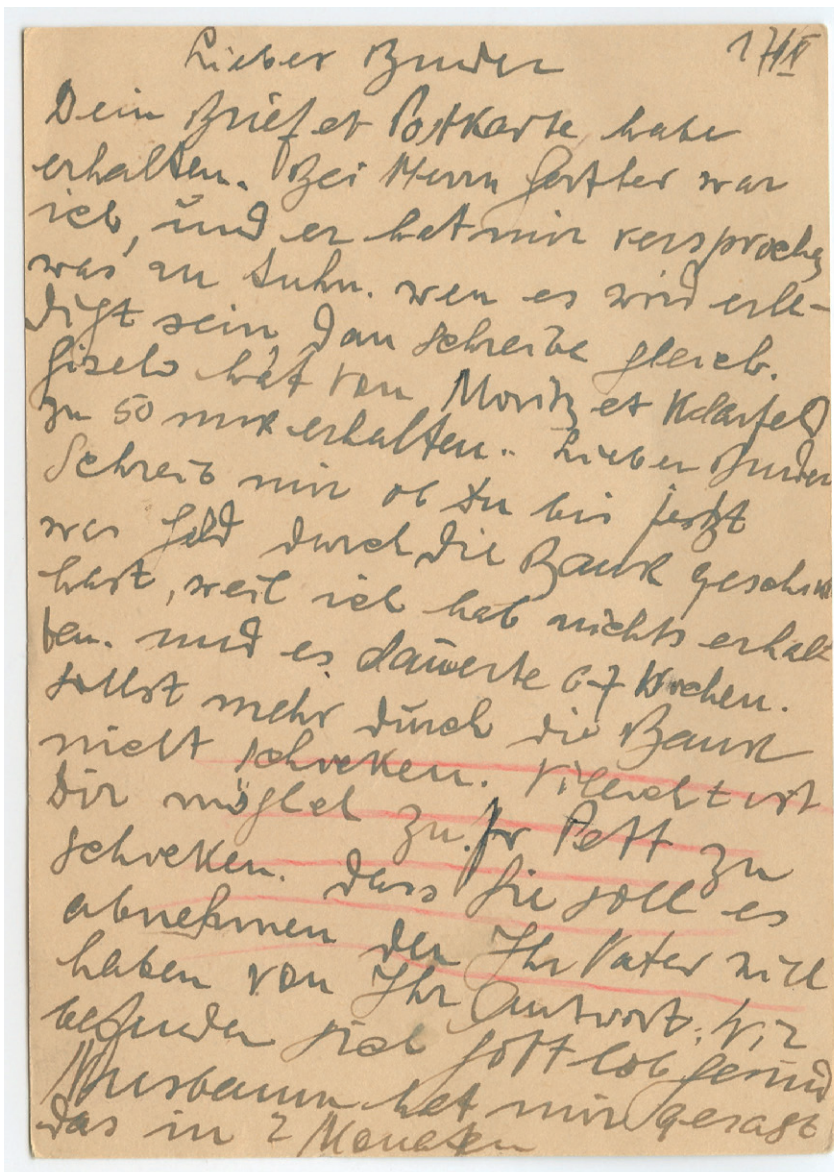 Lieber Bruder 17/IV
Dein Brief et Postkarte habe
erhalten. Bei Herrn war
ich, und er hat mir versproche
was zu tuhn. wen es wird erle-
digt sein, dan schreibe gleich.
Gisela hat von Moritz et Klarfeld
zu 50 mrk erhalten. Lieber Bruder
Schreib mir ob du bis jetzt
was Geld durch die Bank geschi
hast, weil ich hab nichts erhal-
ten. und es dauerte 6-7 Wochen.
sollst mehr durch die Bank
nicht schicken. Villeicht ist
Dir möglich zu Fr Peff zu
schicken. dass Sie soll es
abnehmen den Ihr Vater will
haben von Ihr Antwort. Wir
befinden sich Gott lob gesund
Nusbaum hat mir gesagt
das in 2 Monaten